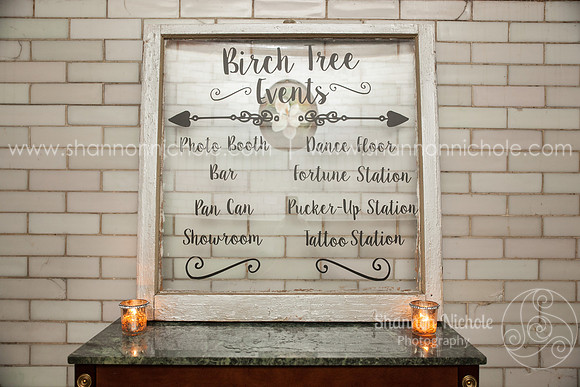 Birch Tree
Events
Photo Booth
Dance Floor
Bar
Fortune Station
Pan Can
Pucker-Up Station
Showroom
Tattoo Station
www.shannonnichole.com
Shannon Nichole
Photography